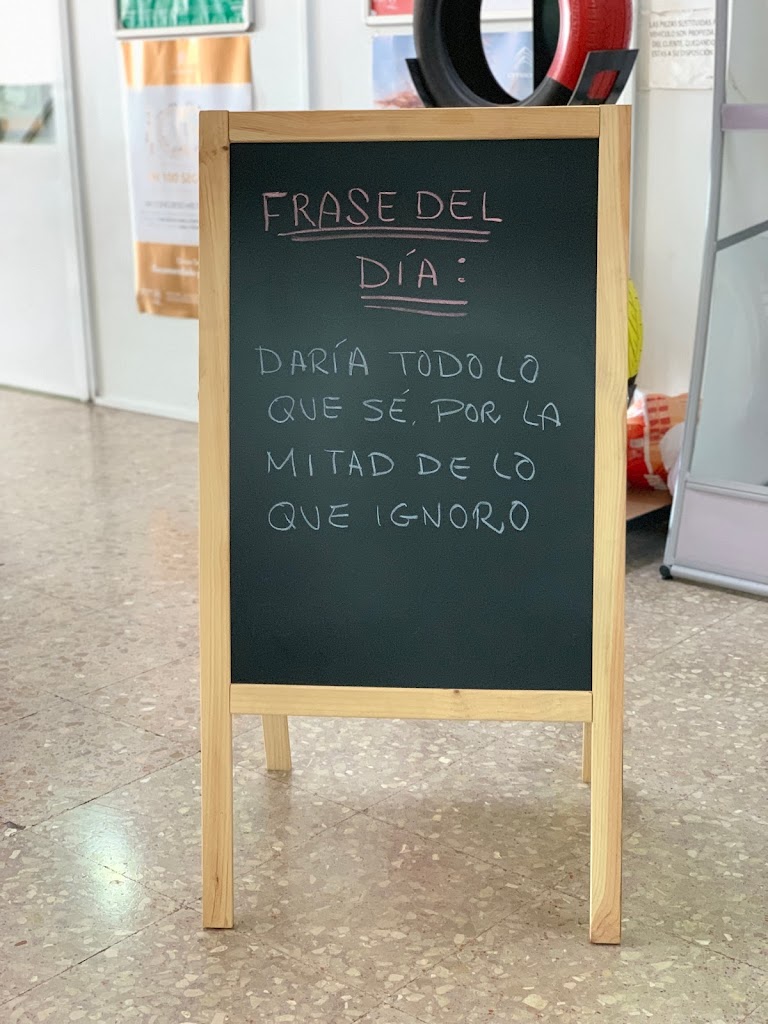 FRASE DEL
DÍA:
DARÍA TODO LO
QUE SÉ, POR LA
MITAD DE LO
QUE IGNORO
LAS PIEZAS SUSTITUIDAS